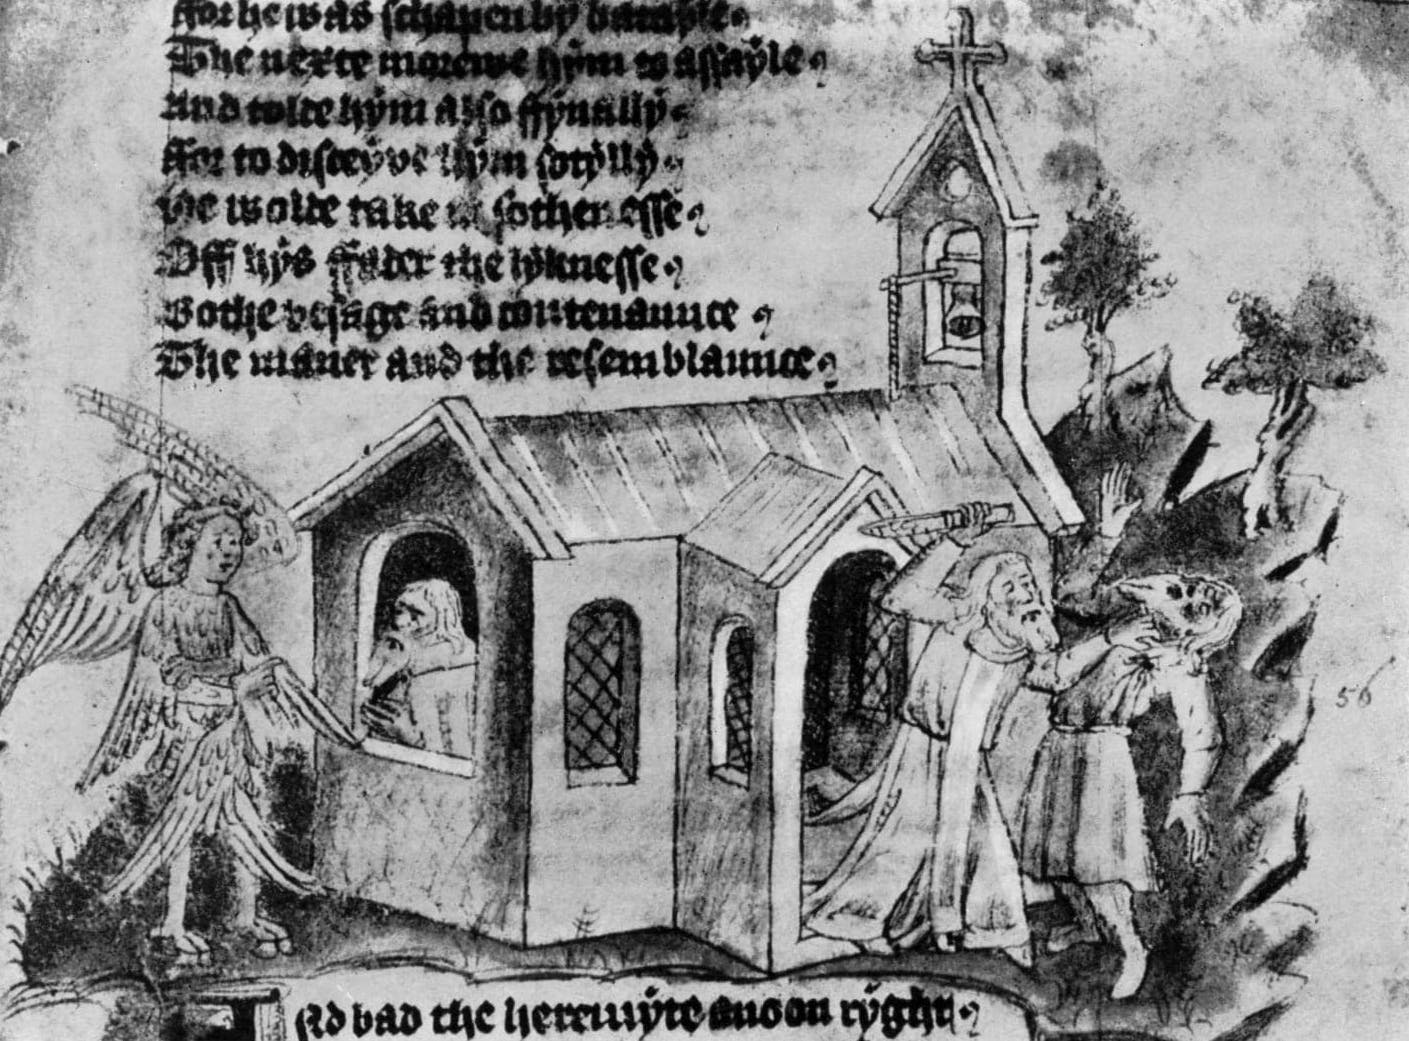 ffor he was schapen by batayle
The nexte morewe hym to assayle
And tolde hym also ffynally
ffor to disceyve hym sotylly
He wolde take in sothenesse
Off hys ffader the lyknesse
Bothe vesage and contenaunce
The maner and the resemblaunce
56
And bad the heremyte anoon ryght